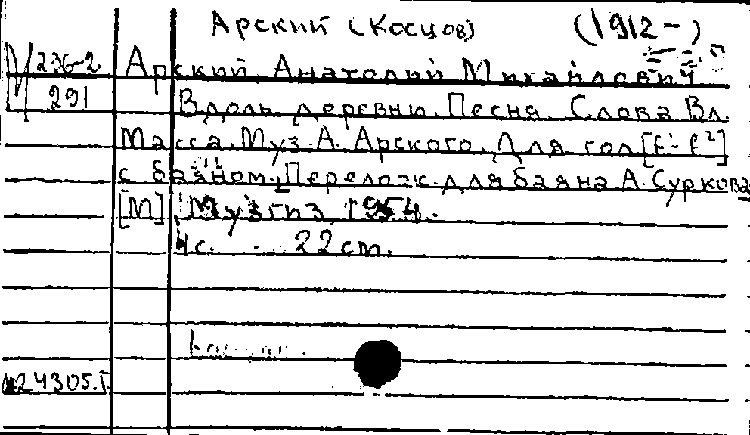 Арский (Косцов) (1912- )
236-2 Арский Анатолий Михайлович
291 Вдоль деревни. Песня. Слова Вл.
Масса. Муз. А. Арского. Для гол [f¹-f²]
с баяном. Перелож. для баяна А. Суркова
[М] Музгиз 1954.
4с. 22 cm.
24305.I